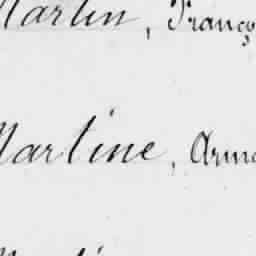 Martin, Franç
Martine, Arm